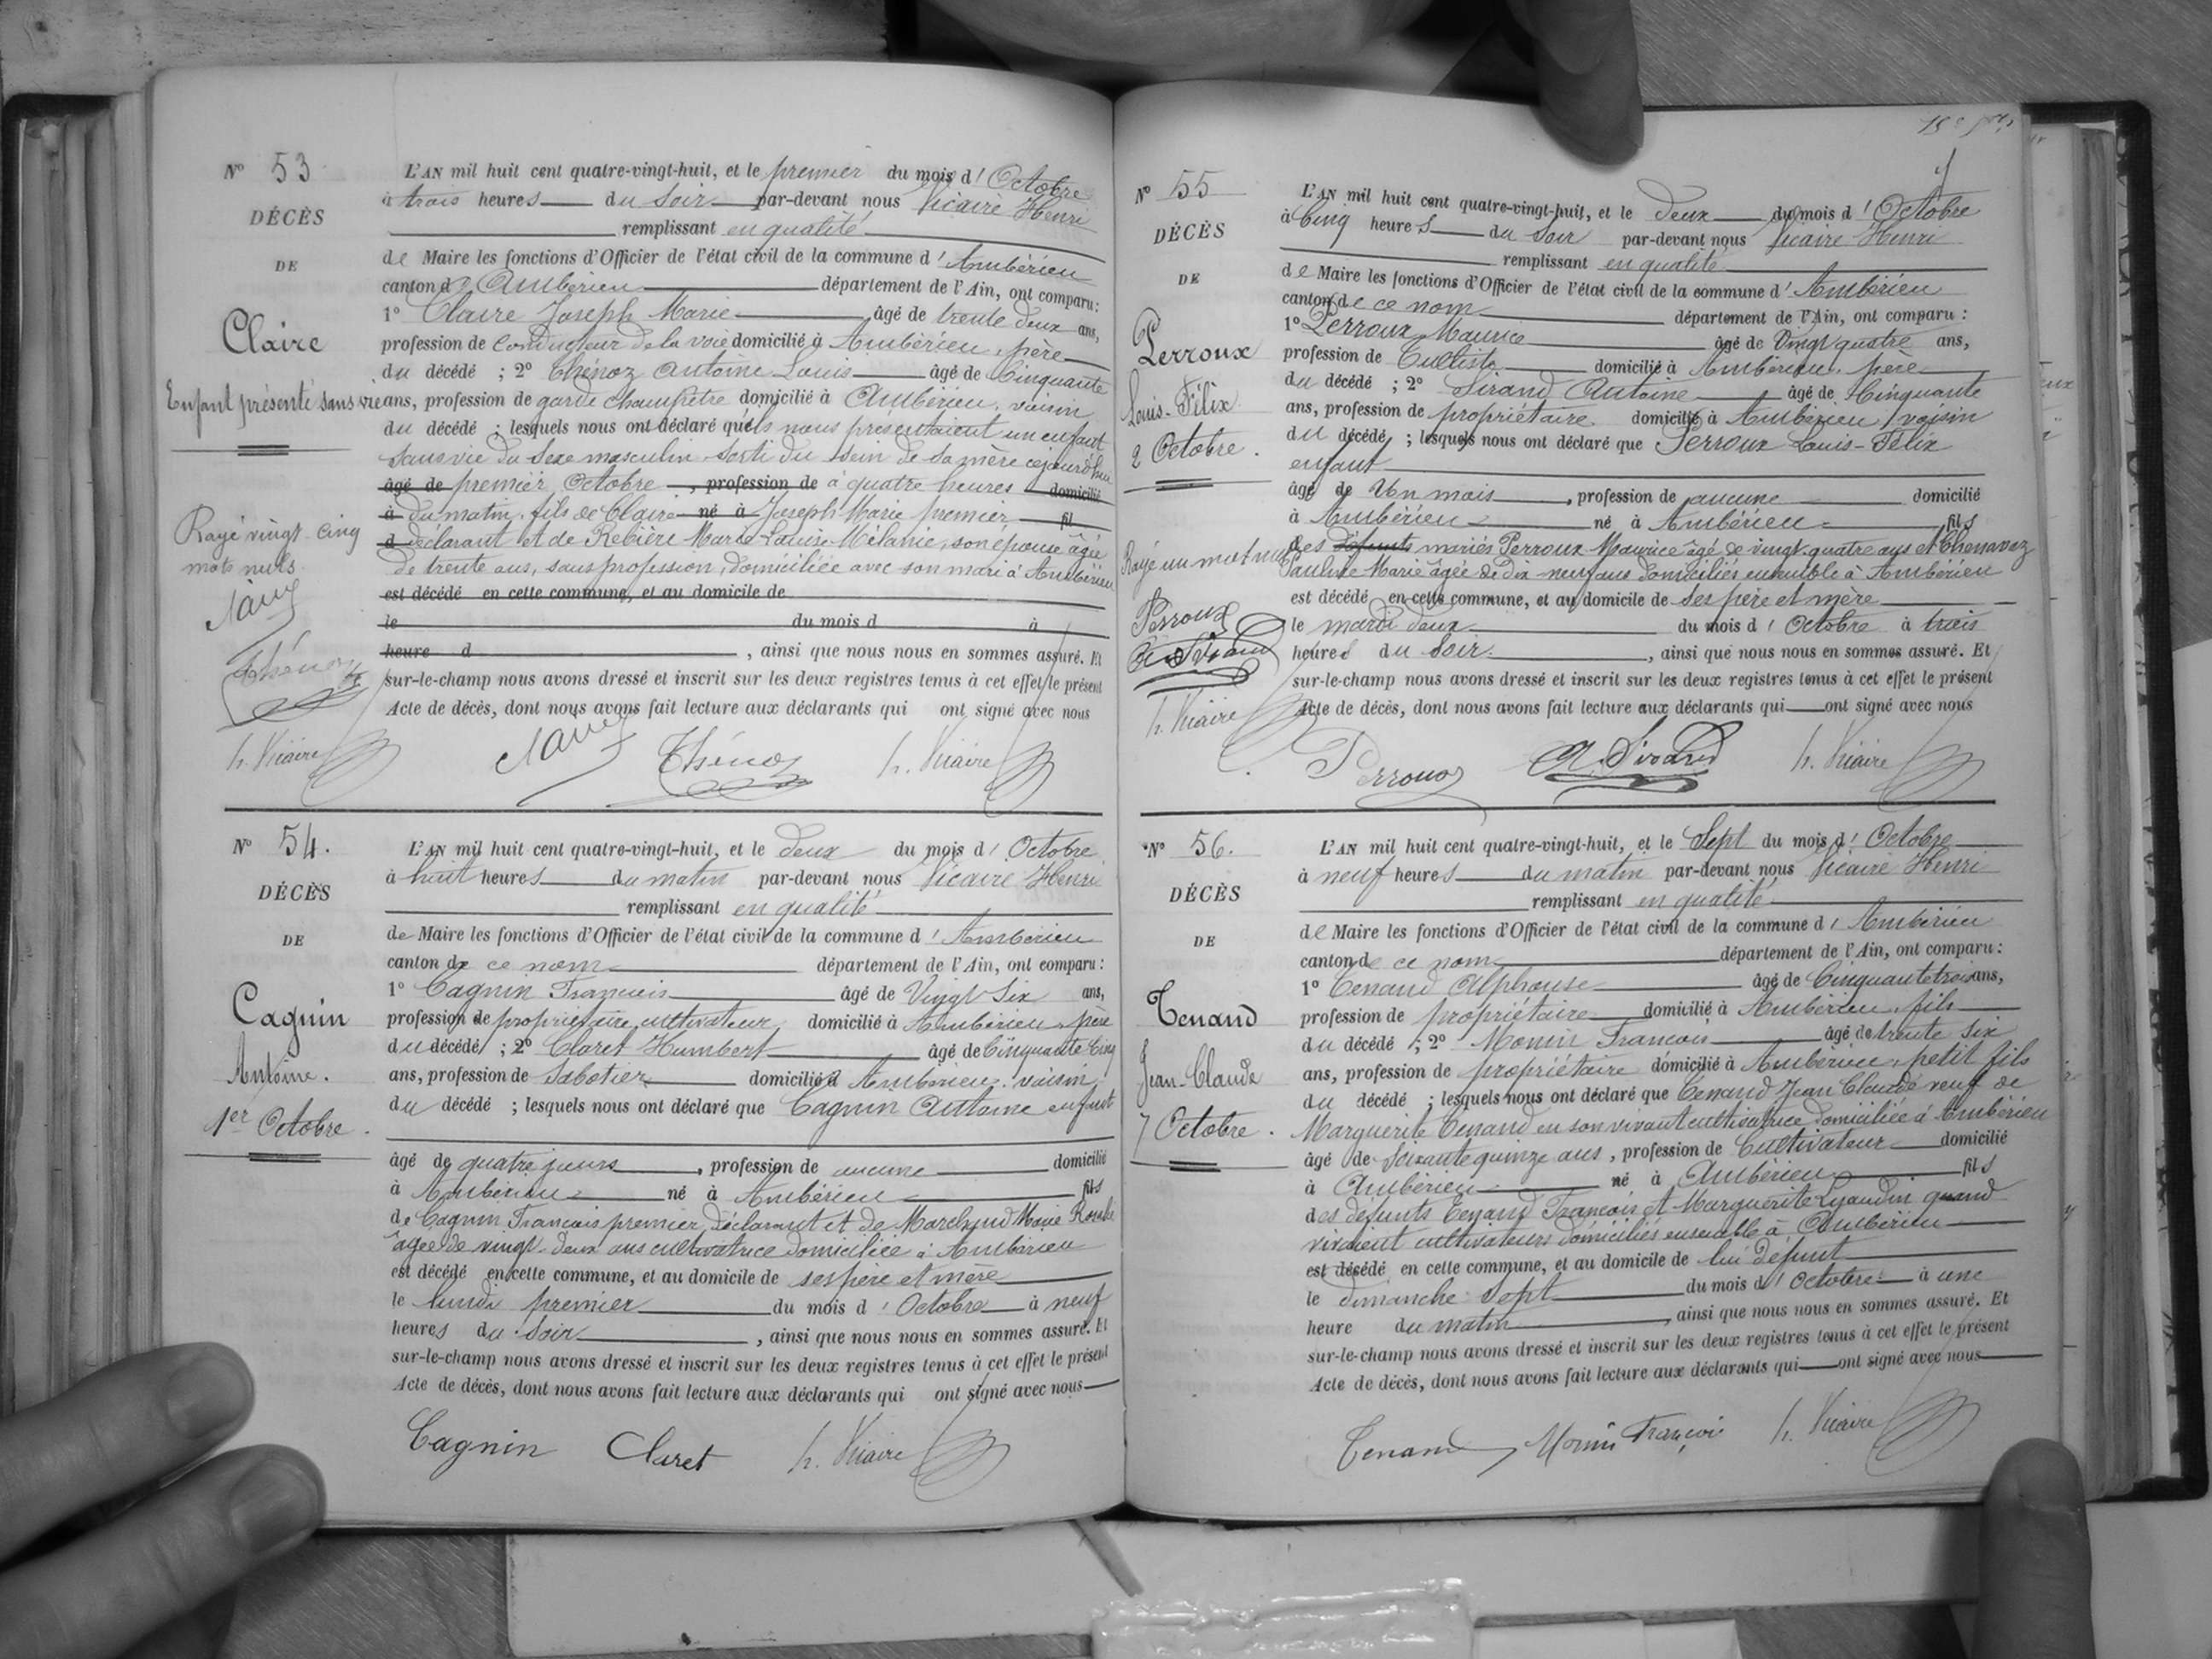 Nº 53
DÉCÈS
DE
Claire
Enfant présenté sans vie
Rayé vingt-cinq
mots nuls
Thénoz
h. Vicaire
L'AN mil huit cent quatre-vingt-huit, et le premier du mois d'Octobre
à trois heures du soir par-devant nous Vicaire Henri
remplissant en qualité
de Maire les fonctions d'Officier de l'état civil de la commune d'Ambérieu
canton d'Ambérieu département de l'Ain, ont comparu :
1º Claire Joseph Marie âgé de trente deux ans,
profession de conducteur de la voie domicilié à Ambérieu, père
du décédé ; 2º Thénoz Antoine Louis âgé de Cinquante
ans, profession de garde champêtre domicilié à Ambérieu, voisin
du décédé ; lesquels nous ont déclaré qu'ils nous présentaient un enfant
sans vie du sexe masculin sorti du sein de sa mère cejourd'hui
âgé de premier Octobre, profession de à quatre heures domicilié
à du matin, fils de Claire né à Joseph Marie premier fil
d déclarant et de Rebière Marie-Louise-Mélanie, son épouse âgée
de trente ans, sans profession, domiciliée avec son mari à Ambérieu
est décédé en cette commune, et au domicile de
le du mois d à
heure d , ainsi que nous nous en sommes assuré. Et
sur-le-champ nous avons dressé et inscrit sur les deux registres tenus à cet effet le présent
Acte de décès, dont nous avons fait lecture aux déclarants qui ont signé avec nous
Thénoz h. Vicaire
Nº 54.
DÉCÈS
DE
Cagnin
Antoine.
1er Octobre.
L'AN mil huit cent quatre-vingt-huit, et le deux du mois d'Octobre
à huit heures du matin par-devant nous Vicaire Henri
remplissant en qualité
de Maire les fonctions d'Officier de l'état civil de la commune d'Ambérieu
canton de ce nom département de l'Ain, ont comparu :
1º Cagnin Francois âgé de Vingt Six ans,
profession de propriétaire cultivateur domicilié à Ambérieu, père
du décédé ; 2º Claret Humbert âgé de Cinquante Cinq
ans, profession de Sabotier domicilié à Ambérieu, voisin
du décédé ; lesquels nous ont déclaré que Cagnin Antoine enfant
âgé de quatre jours, profession de aucune domicilié
à Ambérieu né à Ambérieu fils
de Cagnin Francois premier déclarant et de Marchand Marie
âgée de vingt-deux ans cultivatrice domiciliée à Ambérieu
est décédé en cette commune, et au domicile de ses père et mère
le lundi premier du mois d'Octobre à neuf
heures du soir , ainsi que nous nous en sommes assuré. Et
sur-le-champ nous avons dressé et inscrit sur les deux registres tenus à cet effet le présent
Acte de décès, dont nous avons fait lecture aux déclarants qui ont signé avec nous
Cagnin Claret h. Vicaire
Nº 55
DÉCÈS
DE
Perroux
Louis-Félix
2 Octobre.
Rayé un mot nul
Perroux
A. Sirand
h. Vicaire
L'AN mil huit cent quatre-vingt-huit, et le deux du mois d'Octobre
à Cinq heures du soir par-devant nous Vicaire Henri
remplissant en qualité
de Maire les fonctions d'Officier de l'état civil de la commune d'Ambérieu
canton de ce nom département de l'Ain, ont comparu :
1º Perroux Maurice âgé de Vingt quatre ans,
profession de domicilié à Ambérieu, père
du décédé ; 2º Sirand Antoine âgé de Cinquante
ans, profession de propriétaire domicilié à Ambérieu, voisin
du décédé ; lesquels nous ont déclaré que Perroux Louis-Félix
enfant
âgé de Un mois, profession de aucune domicilié
à Ambérieu né à Ambérieu fils
des défunts mariés Perroux Maurice âgé de vingt-quatre ans et Chenavaz
Pauline Marie âgée de dix-neuf ans domiciliés ensemble à Ambérieu
est décédé en cette commune, et au domicile de ses père et mère
le mardi deux du mois d'Octobre à trois
heures du soir , ainsi que nous nous en sommes assuré. Et
sur-le-champ nous avons dressé et inscrit sur les deux registres tenus à cet effet le présent
Acte de décès, dont nous avons fait lecture aux déclarants qui ont signé avec nous
Perroux A. Sirand h. Vicaire
Nº 56.
DÉCÈS
DE
Tenand
Jean-Claude
7 Octobre.
L'AN mil huit cent quatre-vingt-huit, et le Sept du mois d'Octobre
à neuf heures du matin par-devant nous Vicaire Henri
remplissant en qualité
de Maire les fonctions d'Officier de l'état civil de la commune d'Ambérieu
canton de ce nom département de l'Ain, ont comparu :
1º Tenand Alphonse âgé de Cinquante trois ans,
profession de propriétaire domicilié à Ambérieu, fils
du décédé ; 2º Monin Francois âgé de trente six
ans, profession de propriétaire domicilié à Ambérieu, petit fils
du décédé ; lesquels nous ont déclaré que Tenand Jean Claude veuf de
Marguerite Tenand en son vivant cultivatrice domiciliée à Ambérieu
âgé de Soixante quinze ans, profession de Cultivateur domicilié
à Ambérieu né à Ambérieu fils
des défunts Tenand Francois et Marguerite quand
vivaient cultivateurs domiciliés ensemble à Ambérieu
est décédé en cette commune, et au domicile de lui défunt
le dimanche sept du mois d'Octobre à une
heure du matin , ainsi que nous nous en sommes assuré. Et
sur-le-champ nous avons dressé et inscrit sur les deux registres tenus à cet effet le présent
Acte de décès, dont nous avons fait lecture aux déclarants qui ont signé avec nous
Tenand Monin François h. Vicaire